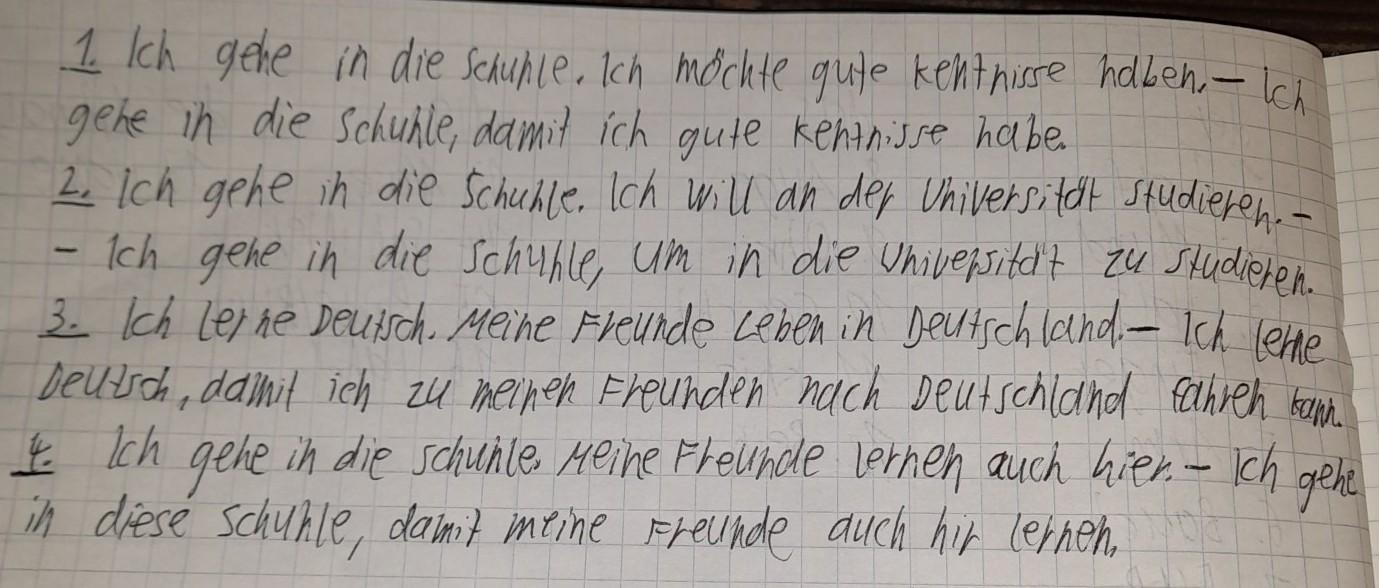 1. Ich gehe in die Schuhle. Ich möchte gute kentnisse haben. – Ich
gehe in die Schuhle, damit ich gute kentnisse habe.
2. Ich gehe in die Schuhle. Ich will an der Universität studieren. –
– Ich gehe in die Schuhle, um in die Universität zu studieren.
3. Ich lerne Deutsch. Meine Freunde Leben in Deutschland. – Ich lerne
Deutsch, damit ich zu meinen Freunden nach Deutschland fahren kann.
4. Ich gehe in die schuhle. Meine Freunde lernen auch hier. – Ich gehe
in diese Schuhle, damit meine Freunde auch hir lernen.